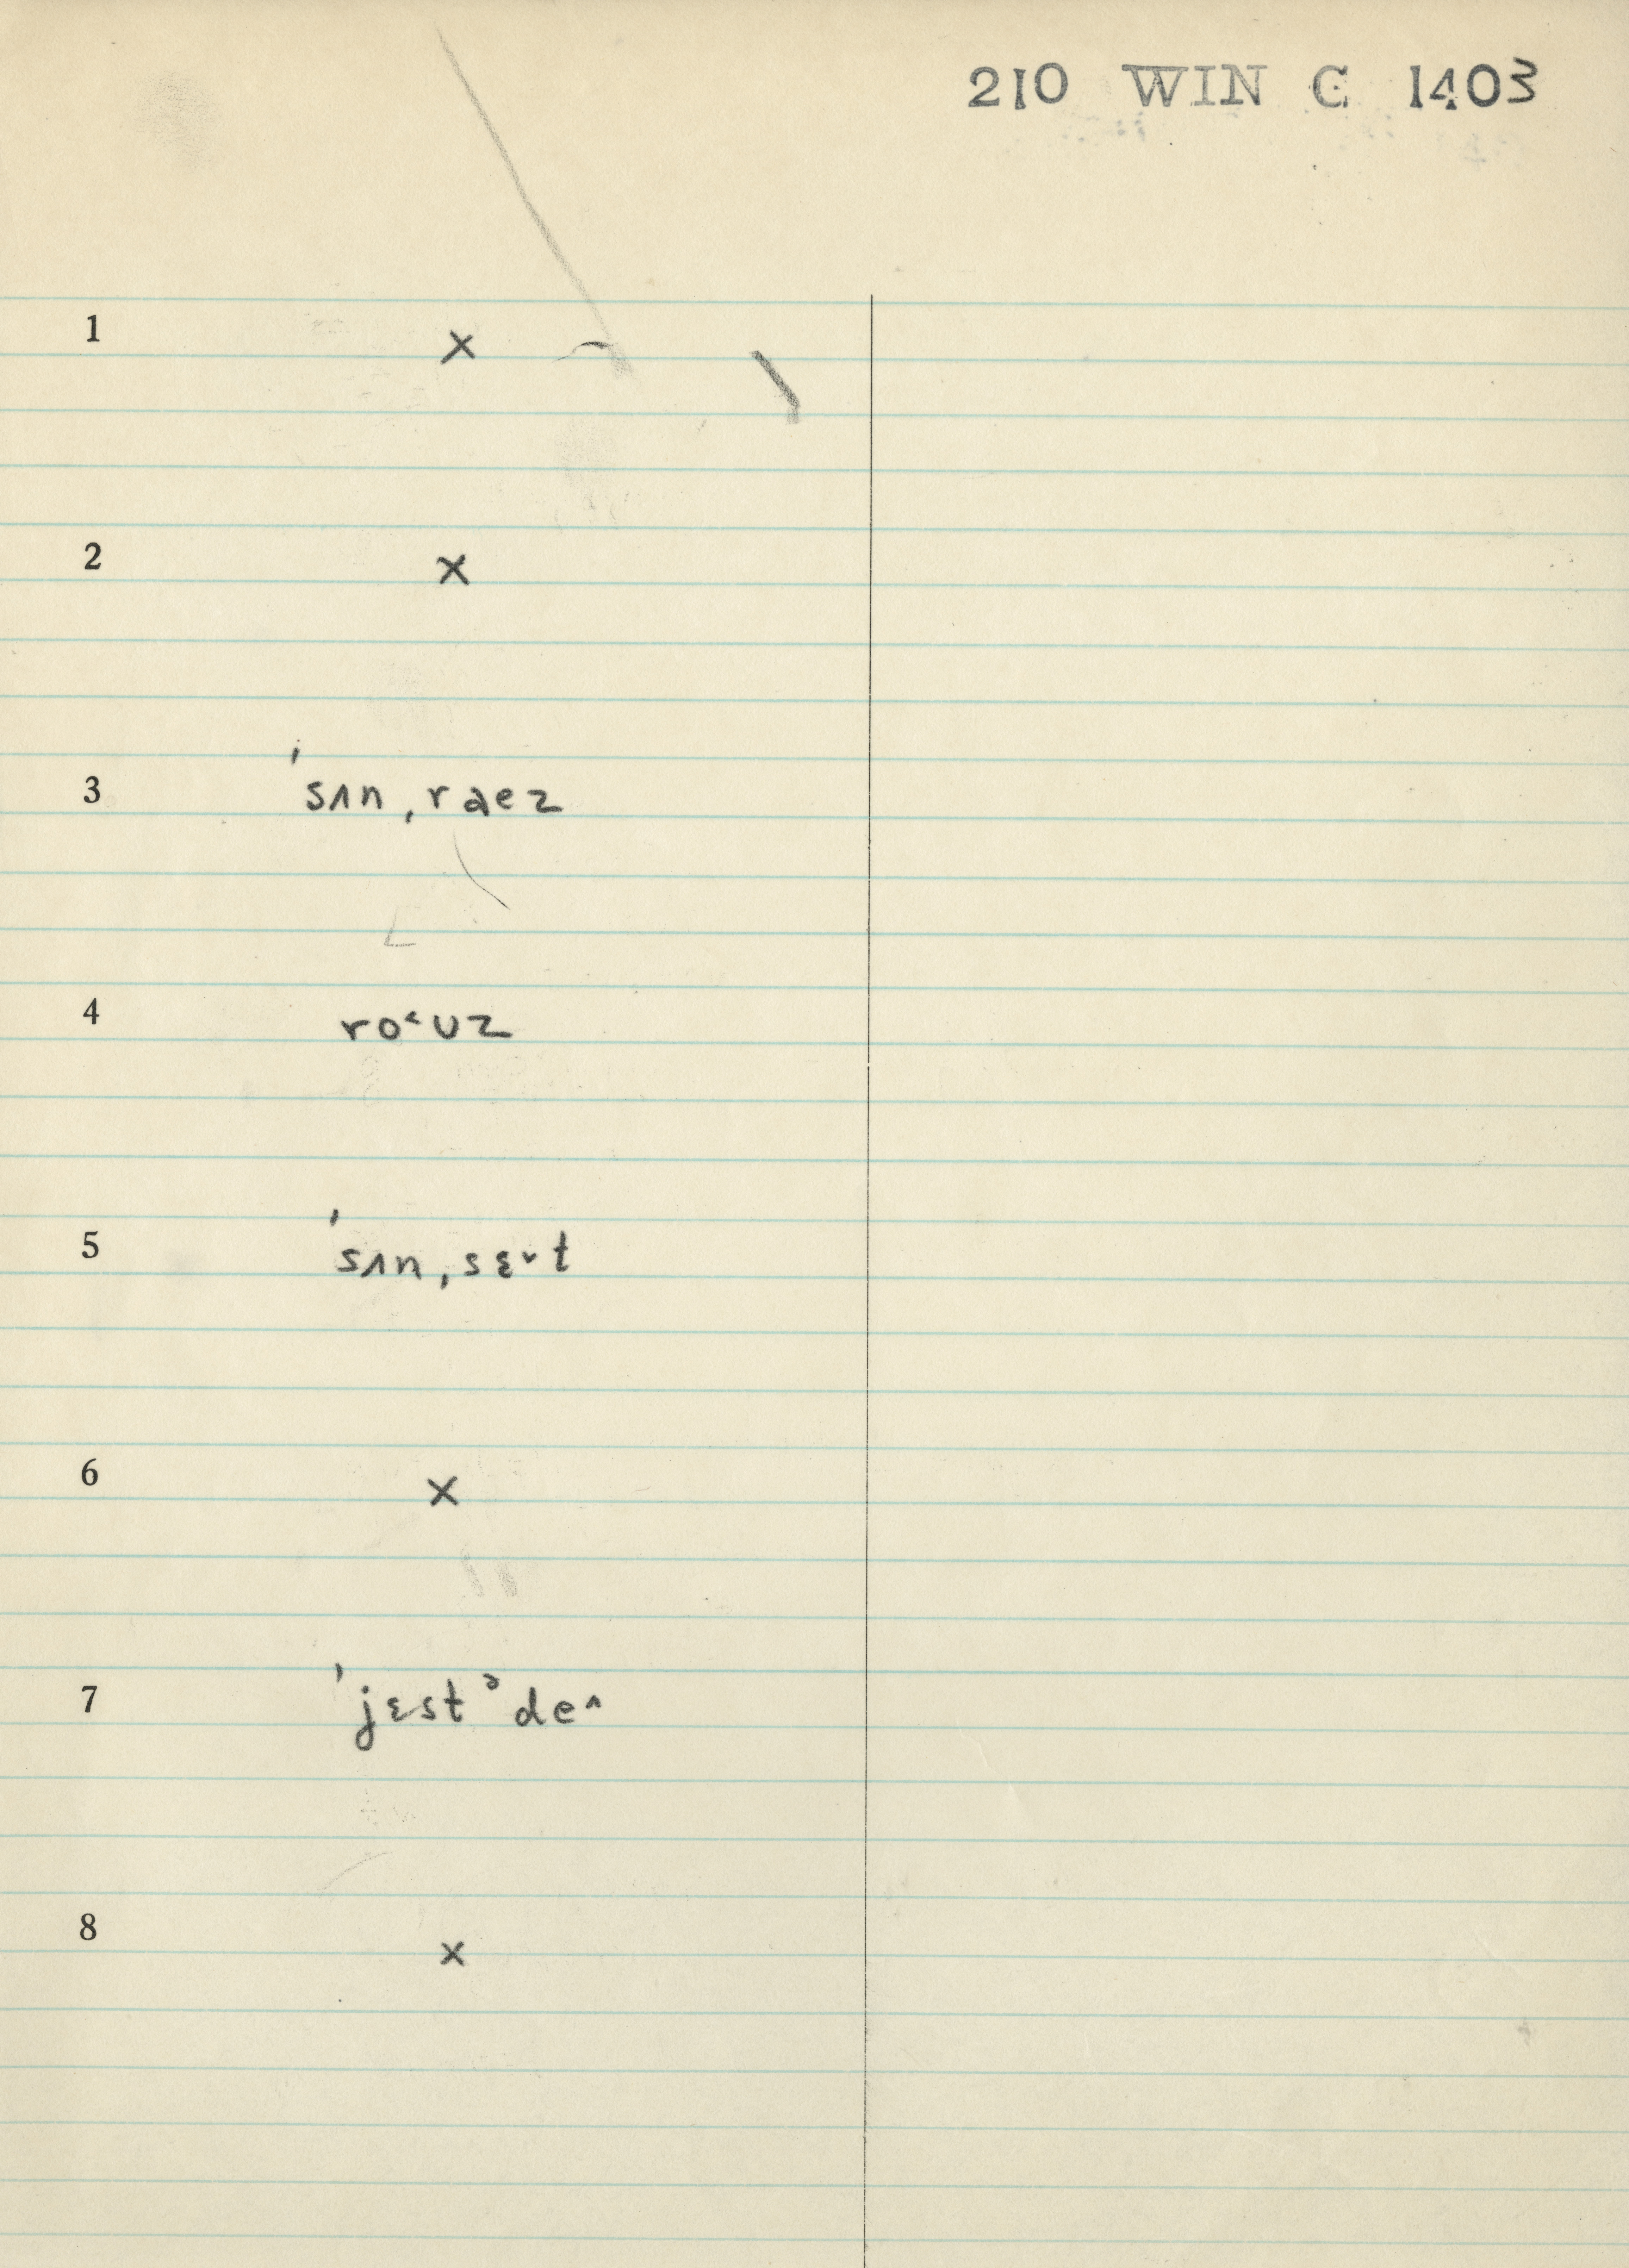 210 WIN C 1403
1 ×
2 ×
3 ˈsʌn ˌraez
4 ro˂uz
5 ˈsʌn ˌsɛ˅t
6 ×
7 ˈjɛstᵊde˄
8 ×